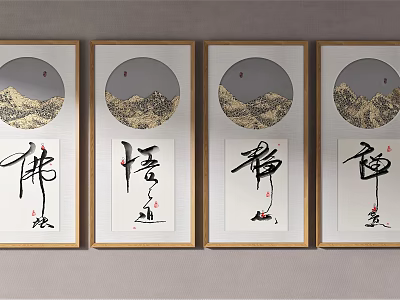 佛缘
悟道
静心
禅意